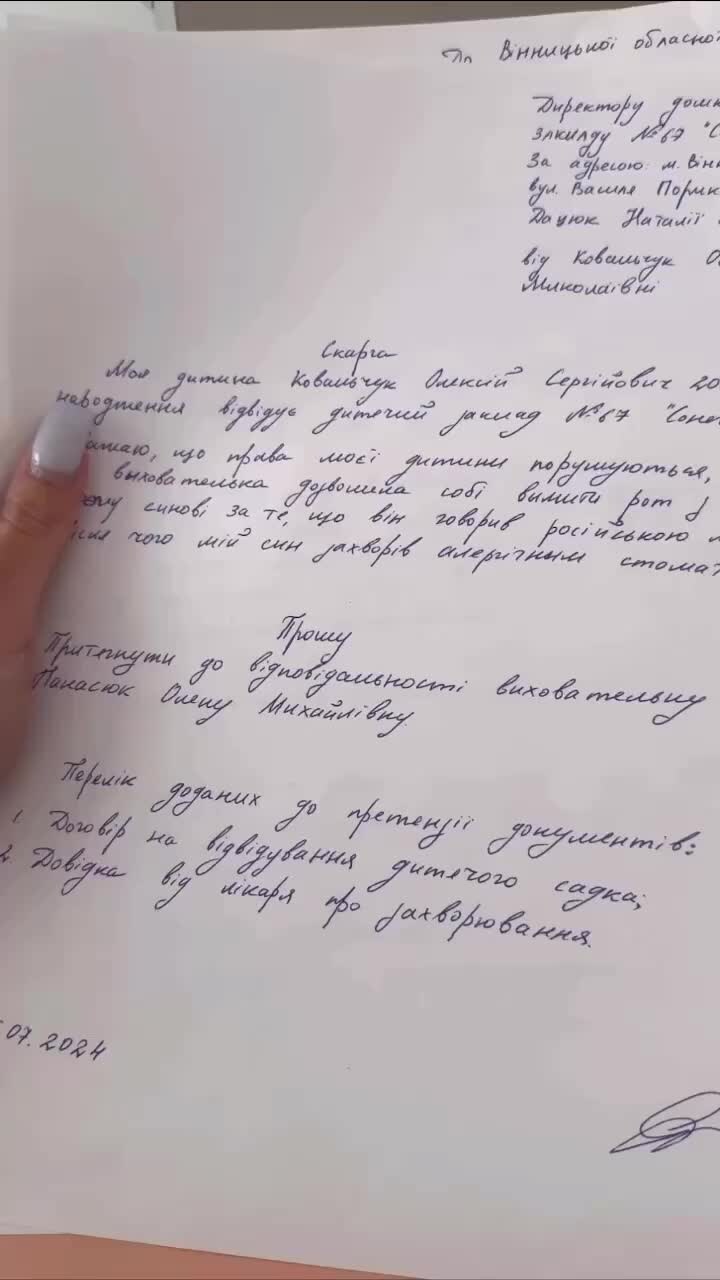 Вінницької обласної
Директору
закладу №67 "С
За адресою: м. Вінн
вул. Василя Порик
Дацюк Наталії
від Ковальчук О
Миколаївні
Скарга
Моя дитина Ковальчук Олексій Сергійович 20
народження відвідує дитячий заклад №67 "Соне
що права моєї дитини порушуються,
вихователька дозволила собі вимити рот
синові за те, що він говорив російською м
чого мій син захворів алергічним стомат
Прошу
Притягнути до відповідальності виховательку
Панасюк Олену Михайлівну.
Перелік доданих до претензії документів:
1. Договір на відвідування дитячого садка;
2. Довідка від лікаря про захворювання.
07.2024